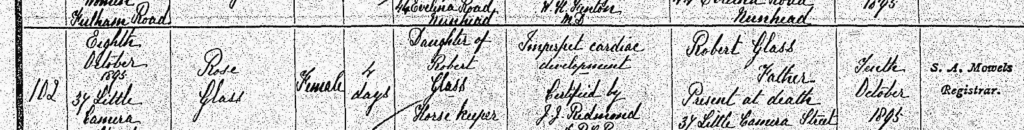 Fulham Road
44 Evelina Road
Nunhead
W. H. Fenton
M D
44 Evelina Road
Nunhead
1895
102
Eighth
October
1895
37 Little
Camera
Rose
Glass
Female
4
days
Daughter of
Robert
Glass
Horse keeper
Imperfect cardiac
development
Certified by
J. J. Redmond
Robert Glass
Father
Present at death
37 Little Camera Street
Tenth
October
1895
S. A. Mowels
Registrar.